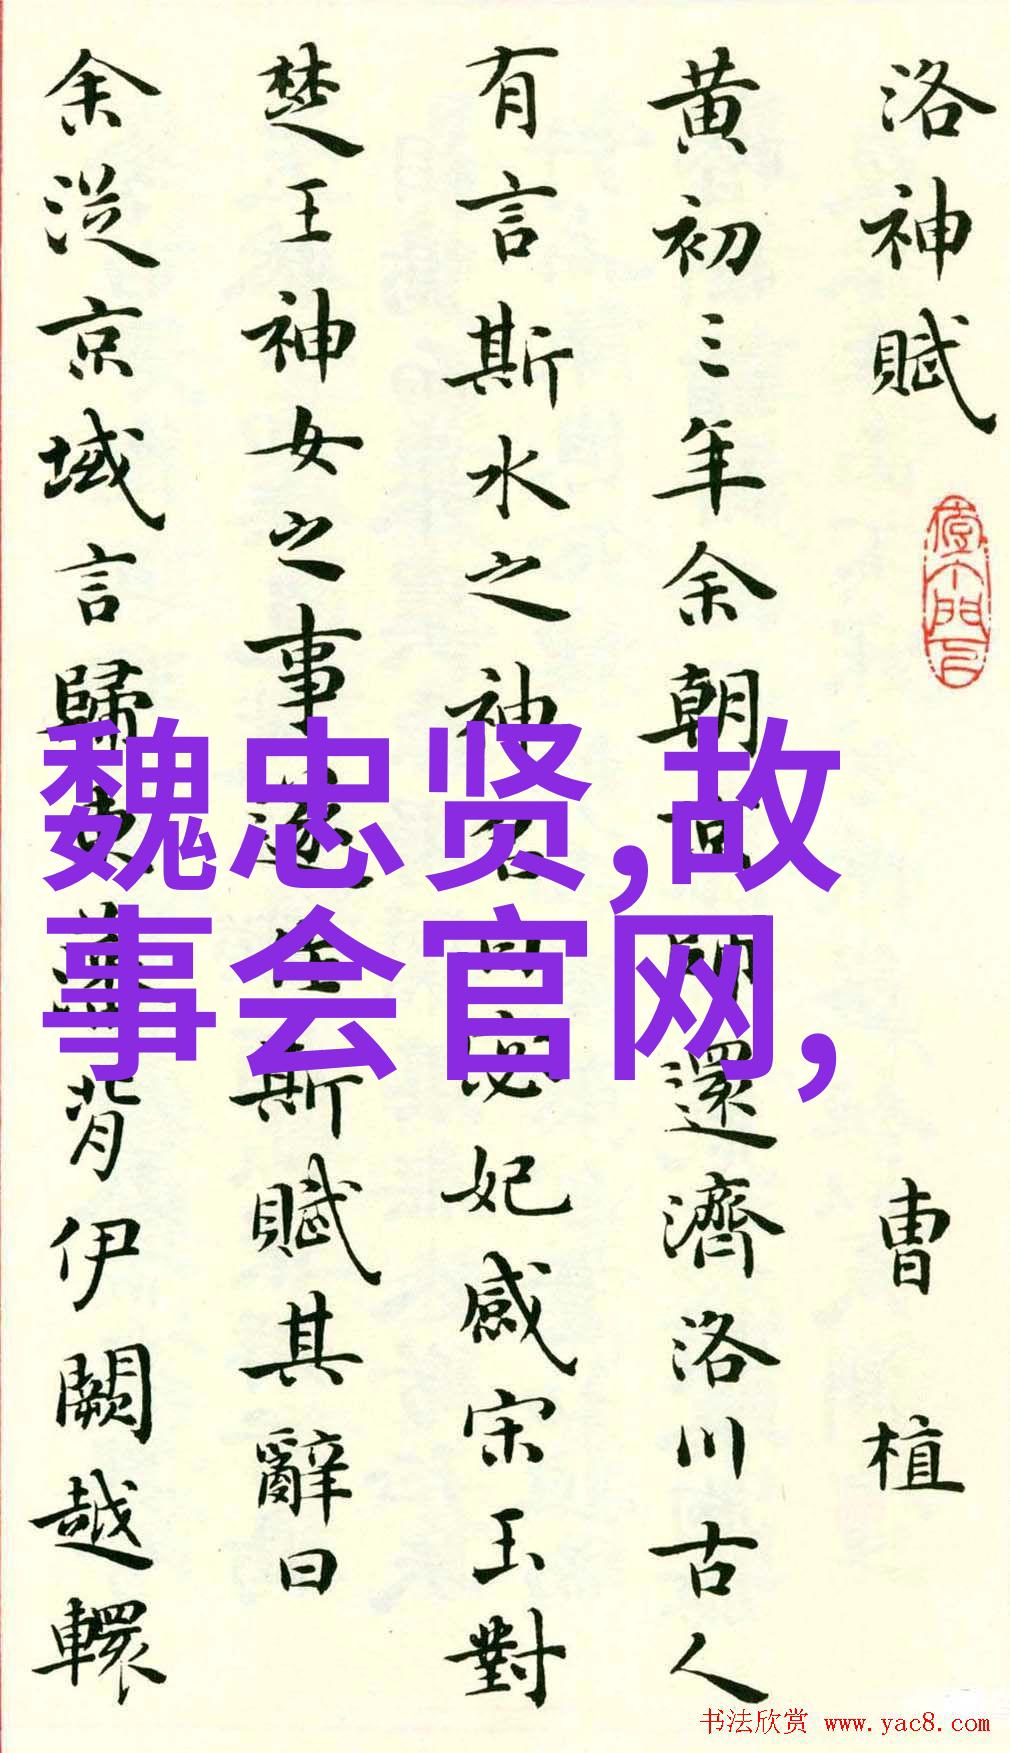 洛神賦
曹植
黄初三年余朝京師還濟洛川古人
有言斯水之神名曰宓妃感宋玉對
楚王神女之事遂作斯賦其辭曰
余從京域言歸東藩背伊闕越轘
魏忠贤,故
事会官网,
书法欣赏 www.yac8.com